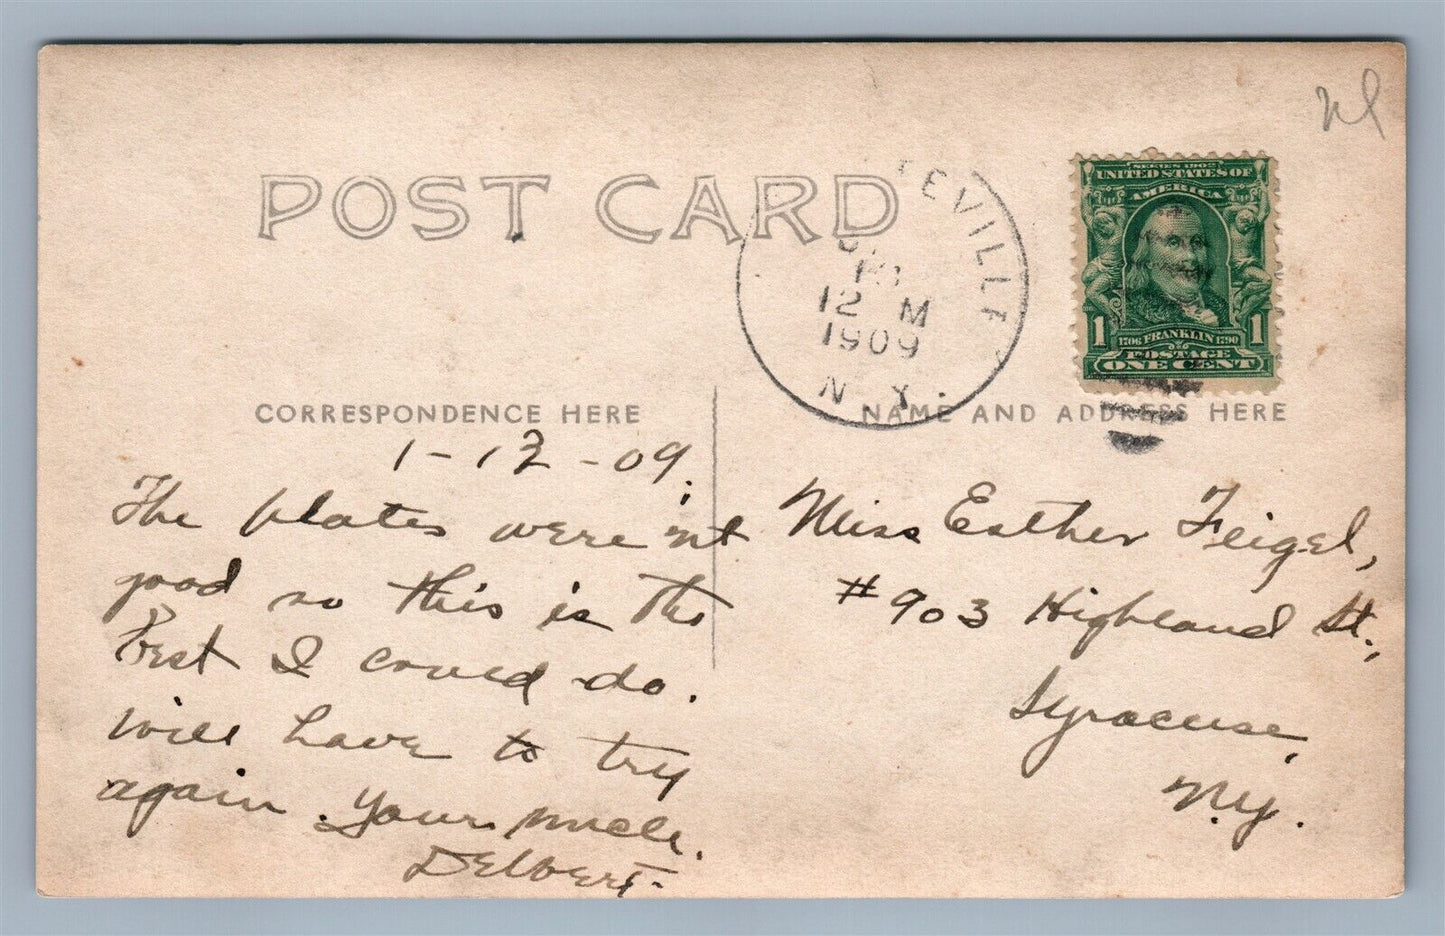 POST CARD
TEVILLE
12 M
1909
N. Y.
SERIES 1902
UNITED STATES OF
AMERICA
1 1706 FRANKLIN 1790 1
POSTAGE
ONE CENT
CORRESPONDENCE HERE
NAME AND ADDRESS HERE
1-12-09.
The plates were'nt
good so this is the
best I could do.
Will have to try
again. Your uncle.
Delbert.
Miss Esther Feigel,
#903 Highland St.,
Syracuse,
N.Y.